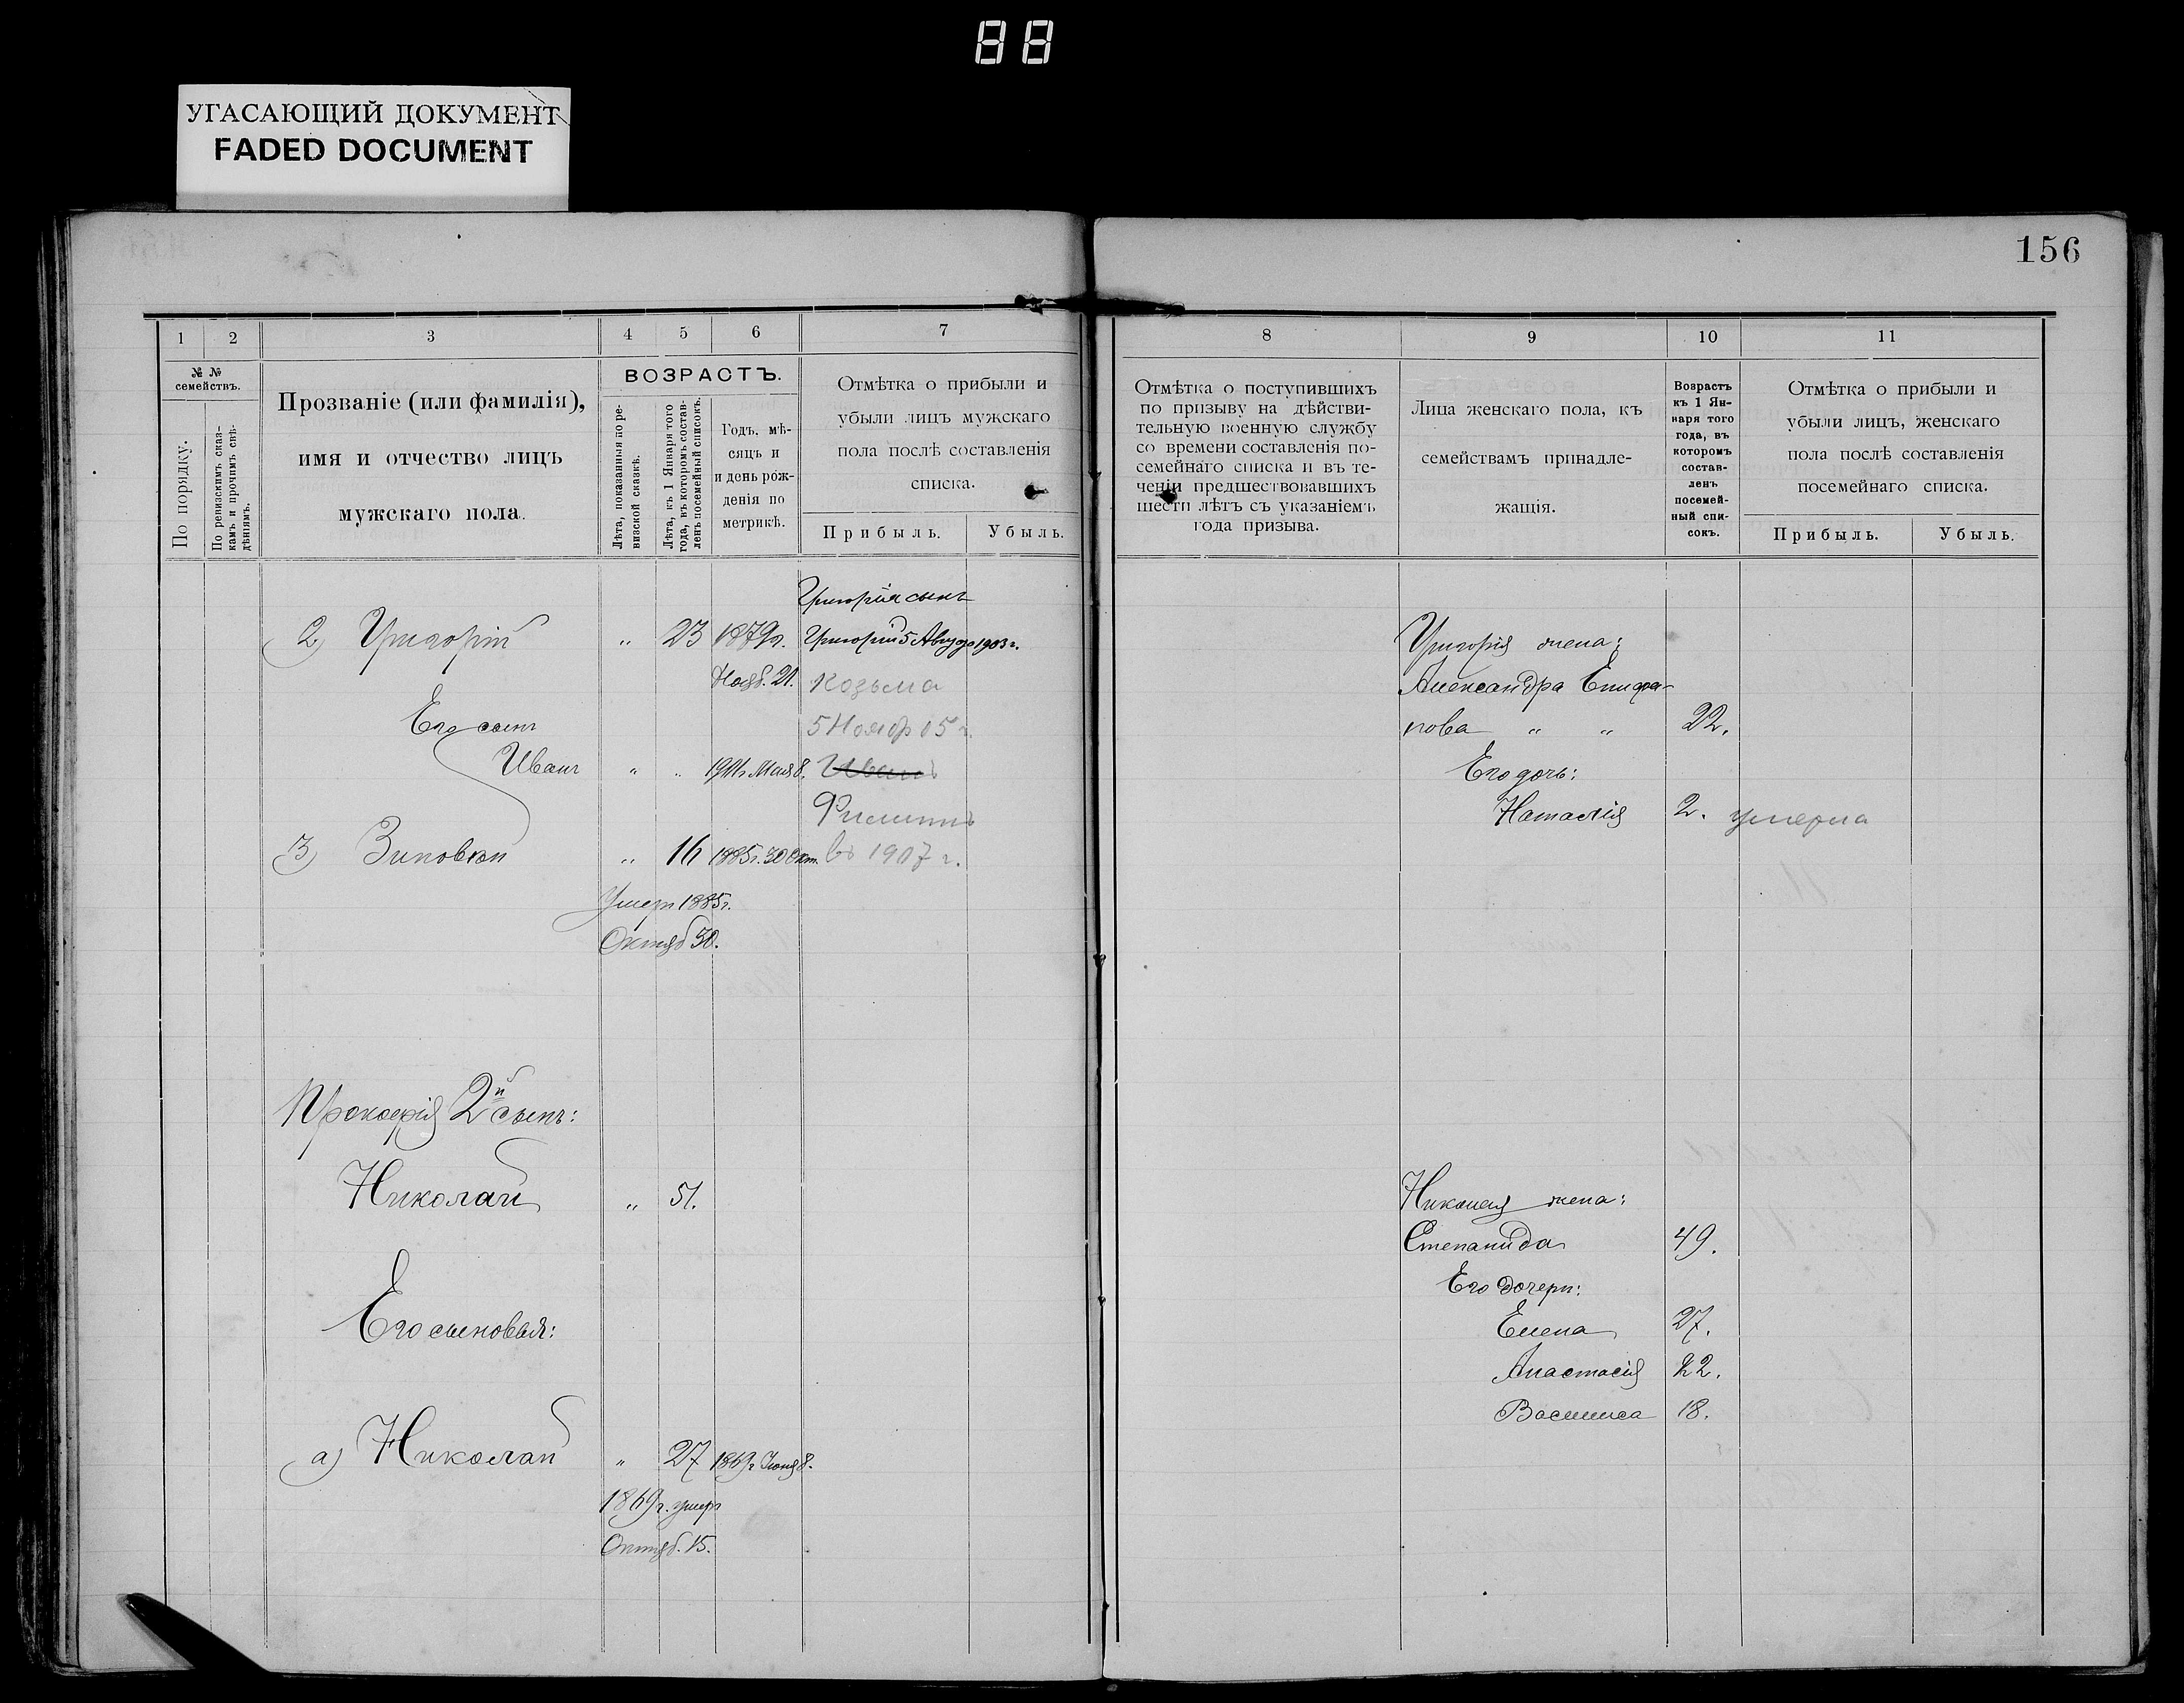 88
УГАСАЮЩИЙ ДОКУМЕНТ
FADED DOCUMENT
156
1 2 3 4 5 6 7
№ №
семействъ.
По порядку.
По ревизскимъ сказ-
камъ и прочимъ свѣ-
дѣніямъ.
Прозваніе (или фамилія),
имя и отчество лицъ
мужскаго пола.
ВОЗРАСТЪ.
Лѣта, показанныя по ре-
визской сказкѣ.
Лѣта, къ 1 Января того
года, въ которомъ состав-
ленъ посемейный списокъ.
Годъ, мѣ-
сяцъ и
и день рож-
денія по
метрикѣ.
Отмѣтка о прибыли и
убыли лицъ мужскаго
пола послѣ составленія
списка.
Прибыль. Убыль.
Григорія сынъ
2) Григорій " 23 1879г. Григорій 5 Авгу до 1903 г.
Нояб. 21. Козьма
Его сынъ 5 Нояб 05 г.
Иванъ " " 1901г Мая 8. Иванъ
Филиппъ
3) Зиновій " 16 1885г. 30 Окт. въ 1907 г.
Умеръ 1885г.
Октяб 30.
Прокофія 2й сынъ:
Николай " 51.
Его сыновья:
а) Николай " 27 1869г Іюня 8.
1869г. умеръ
Октяб. 15.
8 9 10 11
Отмѣтка о поступившихъ
по призыву на дѣйстви-
тельную военную службу
со времени составленія по-
семейнаго списка и въ те-
ченіи предшествовавшихъ
шести лѣтъ съ указаніемъ
года призыва.
Лица женскаго пола, къ
семействамъ принадле-
жащія.
Возрастъ
къ 1 Ян-
варя того
года, въ
которомъ
состав-
ленъ
посемей-
ный спи-
сокъ.
Отмѣтка о прибыли и
убыли лицъ, женскаго
пола послѣ составленія
посемейнаго списка.
Прибыль. Убыль.
Григорія жена:
Александра Епифа-
нова " " 22.
Его дочь:
Наталія 2. умерла
Николая жена:
Степанида 49.
Его дочери:
Елена 27.
Анастасія 22.
Василиса 18.